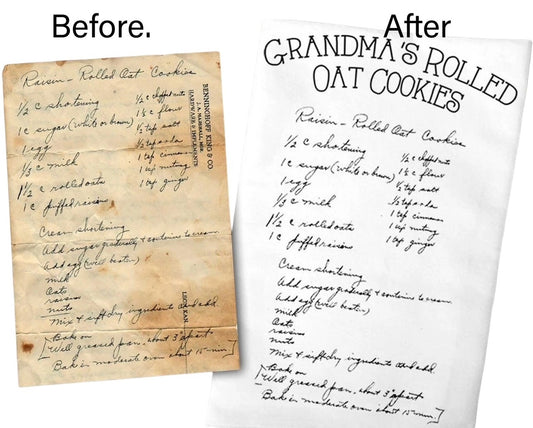 Before.
Raisin - Rolled Oat Cookies
1/2 c shortening
1 c sugar (white or brown)
1 egg
1/3 c milk
1 1/2 c rolled oats
1 c puffed raisins
1/2 c chopped nuts
1 1/2 c flour
1/2 tsp salt
1/2 tsp soda
1 tsp cinnamon
1 tsp nutmeg
1 tsp ginger
BENNINGHOFF KING & CO
HARDWARE & IMPLEMENTS
Cream shortening
Add sugar gradually & continue to cream.
Add egg (well beaten)
milk
Oats
raisins
nuts
Mix & sift dry ingredients and add.
Bake on
[Well greased pan, about 3" apart
Bake in moderate oven about 15 min.]
After
GRANDMA'S ROLLED
OAT COOKIES
Raisin - Rolled Oat Cookies
1/2 c shortening
1 c sugar (white or brown)
1 egg
1/3 c milk
1 1/2 c rolled oats
1 c puffed raisins
1/2 c chopped nuts
1 1/2 c flour
1/2 tsp salt
1/2 tsp soda
1 tsp cinnamon
1 tsp nutmeg
1 tsp ginger
Cream shortening
Add sugar gradually & continue to cream.
Add egg (well beaten)
milk
Oats
raisins
nuts
Mix & sift dry ingredients and add.
Bake on
[Well greased pan, about 3" apart
Bake in moderate oven about 15 min.]